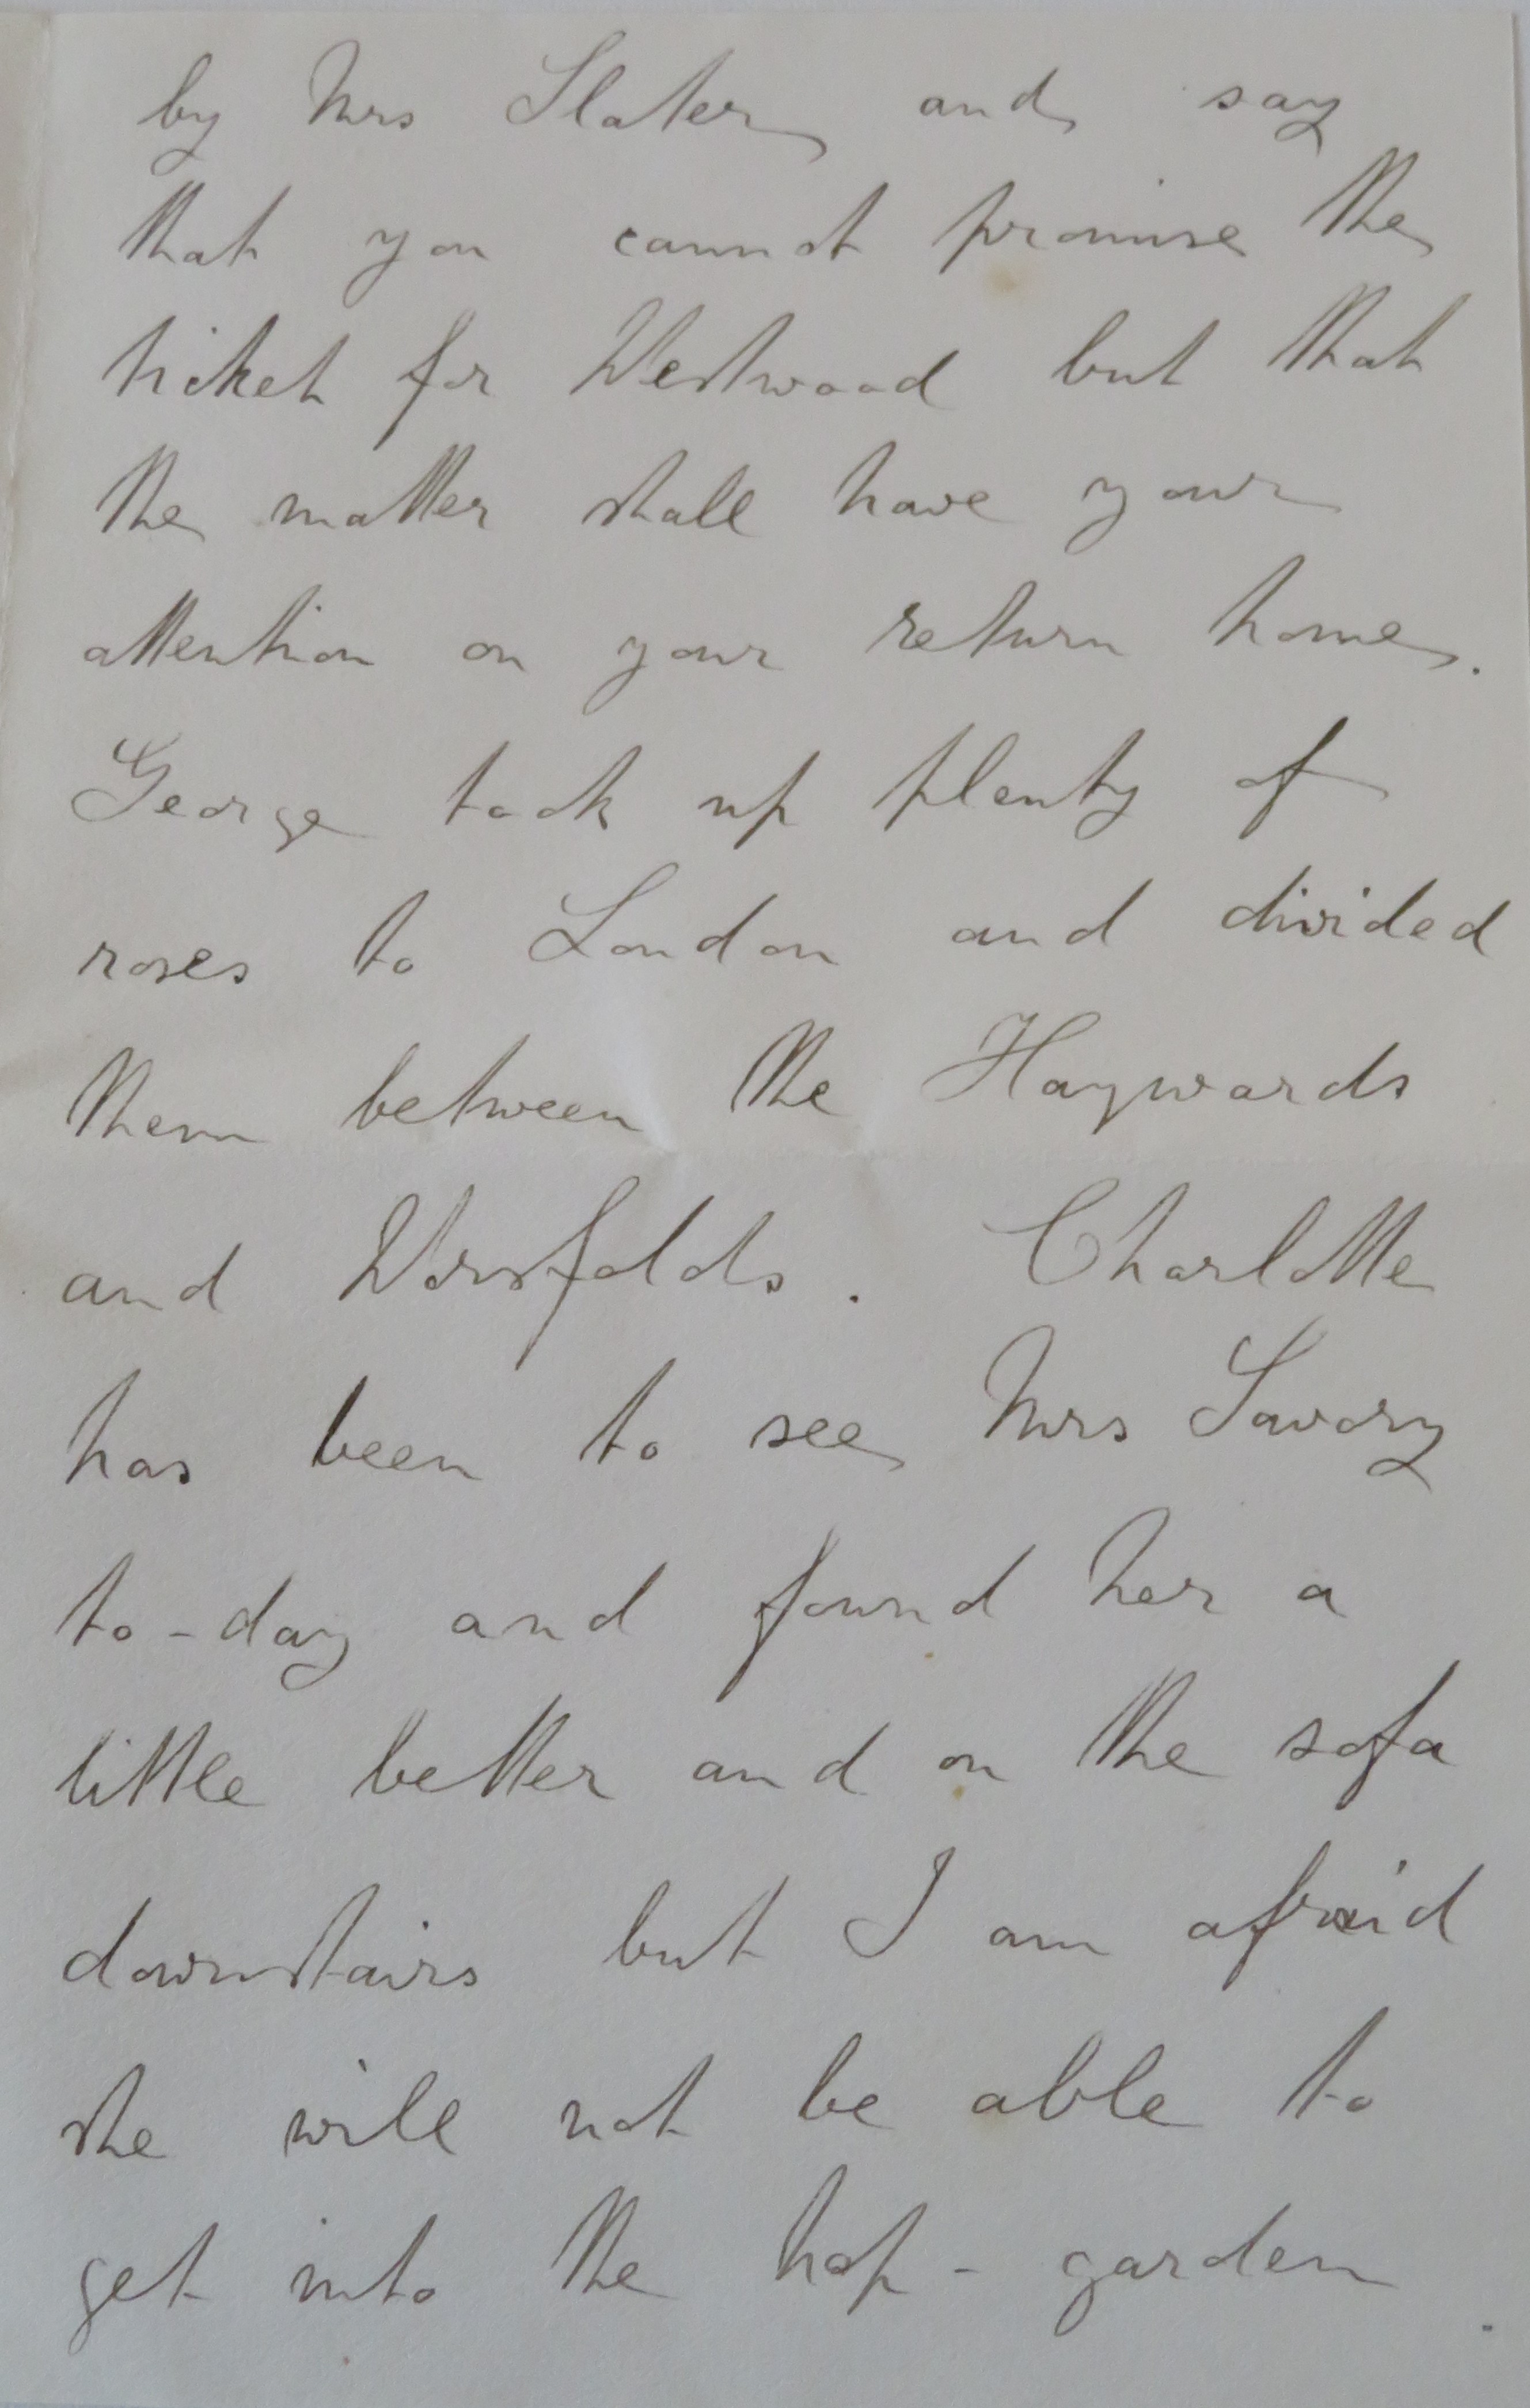 by Mrs Slater and say
that you cannot promise the
ticket for Westwood but that
the matter shall have your
attention on your return home.
George took up plenty of
roses to London and divided
them between the Haywards
and Worsfolds. Charlotte
has been to see Mrs Savory
to-day and found her a
little better and on the sofa
downstairs but I am afraid
she will not be able to
get into the hop-garden